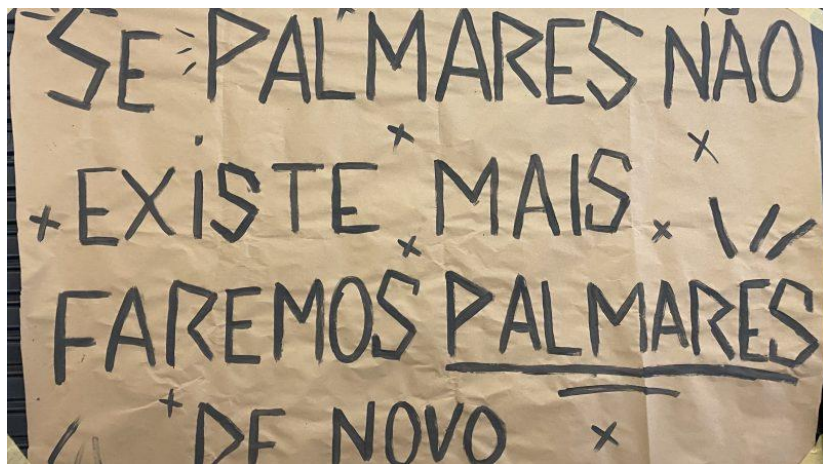 SE PALMARES NÃO
EXISTE MAIS
FAREMOS PALMARES
DE NOVO